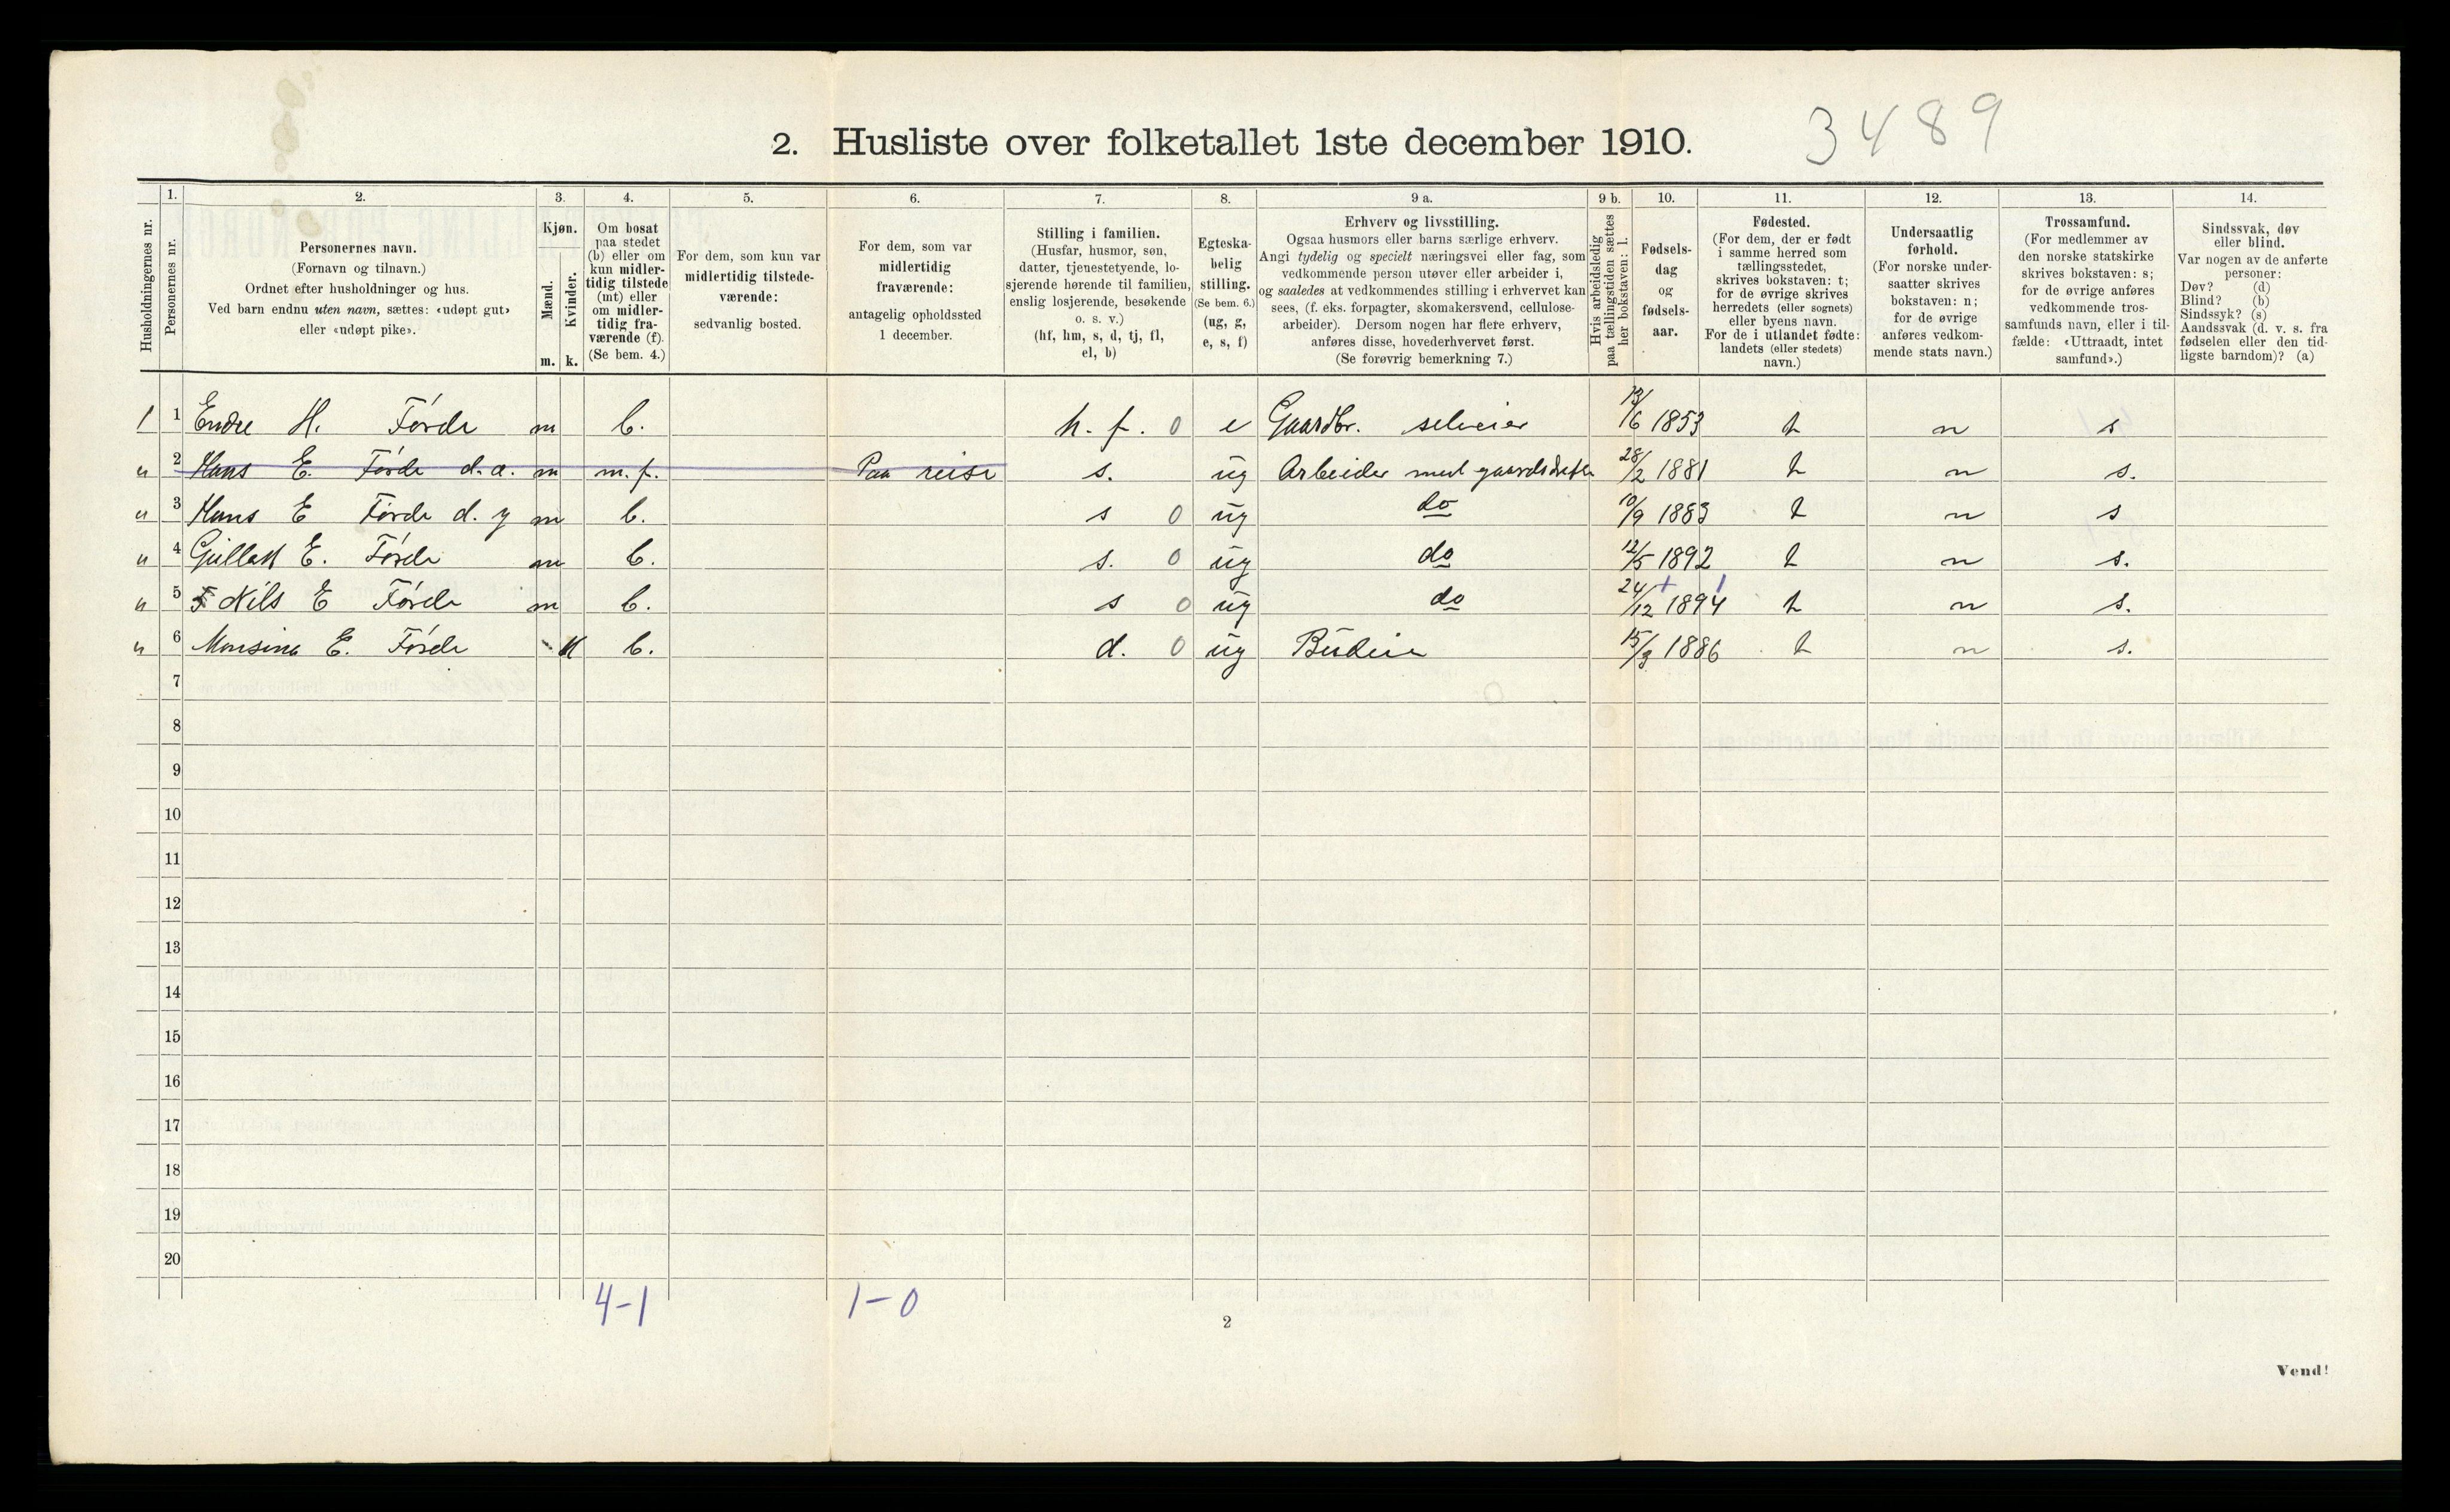 2. Husliste over folketallet 1ste december 1910. 3489
1. 2. 3. 4. 5. 6. 7. 8. 9 a. 9 b. 10. 11. 12. 13. 14.
Husholdningernes nr.
Personernes nr.
Personernes navn.
(Fornavn og tilnavn.)
Ordnet efter husholdninger og hus.
Ved barn endnu uten navn, sættes: «udøpt gut»
eller «udøpt pike».
Kjøn.
Mænd.
Kvinder.
m. k.
Om bosat
paa stedet
(b) eller om
kun midler-
tidig tilstede
(mt) eller
om midler-
tidig fra-
værende (f).
(Se bem. 4.)
For dem, som kun var
midlertidig tilstede-
værende:
sedvanlig bosted.
For dem, som var
midlertidig
fraværende:
antagelig opholdssted
1 december.
Stilling i familien.
(Husfar, husmor, søn,
datter, tjenestetyende, lo-
sjerende hørende til familien,
enslig losjerende, besøkende
o. s. v.)
(hf, hm, s, d, tj, fl,
el, b)
Egteska-
belig
stilling.
(Se bem. 6.)
(ug, g,
e, s, f)
Erhverv og livsstilling.
Ogsaa husmors eller barns særlige erhverv.
Angi tydelig og specielt næringsvei eller fag, som
vedkommende person utøver eller arbeider i,
og saaledes at vedkommendes stilling i erhvervet kan
sees, (f. eks. forpagter, skomakersvend, cellulose-
arbeider). Dersom nogen har flere erhverv,
anføres disse, hovederhvervet først.
(Se forøvrig bemerkning 7.)
Hvis arbeidsledig
paa tællingstiden sættes
her bokstaven: l.
Fødsels-
dag
og
fødsels-
aar.
Fødested.
(For dem, der er født
i samme herred som
tællingsstedet,
skrives bokstaven: t;
for de øvrige skrives
herredets (eller sognets)
eller byens navn.
For de i utlandet fødte:
landets (eller stedets)
navn.)
Undersaatlig
forhold.
(For norske under-
saatter skrives
bokstaven: n;
for de øvrige
anføres vedkom-
mende stats navn.)
Trossamfund.
(For medlemmer av
den norske statskirke
skrives bokstaven: s;
for de øvrige anføres
vedkommende tros-
samfunds navn, eller i til-
fælde: «Uttraadt, intet
samfund».)
Sindssvak, døv
eller blind.
Var nogen av de anførte
personer:
Døv? (d)
Blind? (b)
Sindssyk? (s)
Aandssvak (d. v. s. fra
fødselen eller den tid-
ligste barndom)? (a)
1 1 Endre H. Förde m b. h. f. 0 e Gaardbr. selveier 13/6 1853 t n s
" 2 Hans E. Förde d.æ. m m.f. Paa reise s. ug Arbeider med gaardsdriften 28/2 1881 t n s.
" 3 Hans E Förde d. y m b. s 0 ug do 10/9 1883 t n s
" 4 Gullak E. Förde m b. s. 0 ug do 12/5 1892 t n s.
" 5 Nils E Förde m b. s 0 ug do 24/12 1894 t n s.
" 6 Monsina E. Förde K b. d. 0 ug Budeie 15/3 1886 t n s.
7
8
9
10
11
12
13
14
15
16
17
18
19
20
4-1 1-0
2
Vend!